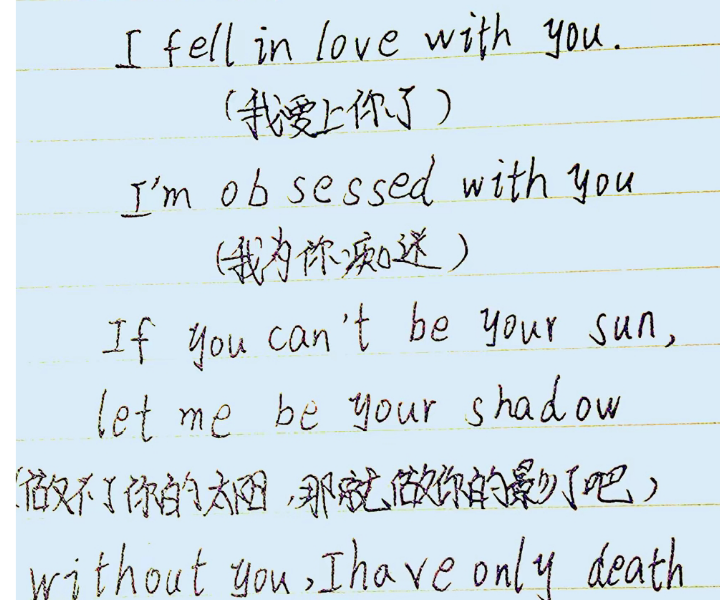 I fell in love with you.
(我爱上你了)
I'm obsessed with you
(我为你痴迷)
If you can't be your sun,
let me be your shadow
(做不了你的太阳,那就做你的影子吧)
without you, I have only death